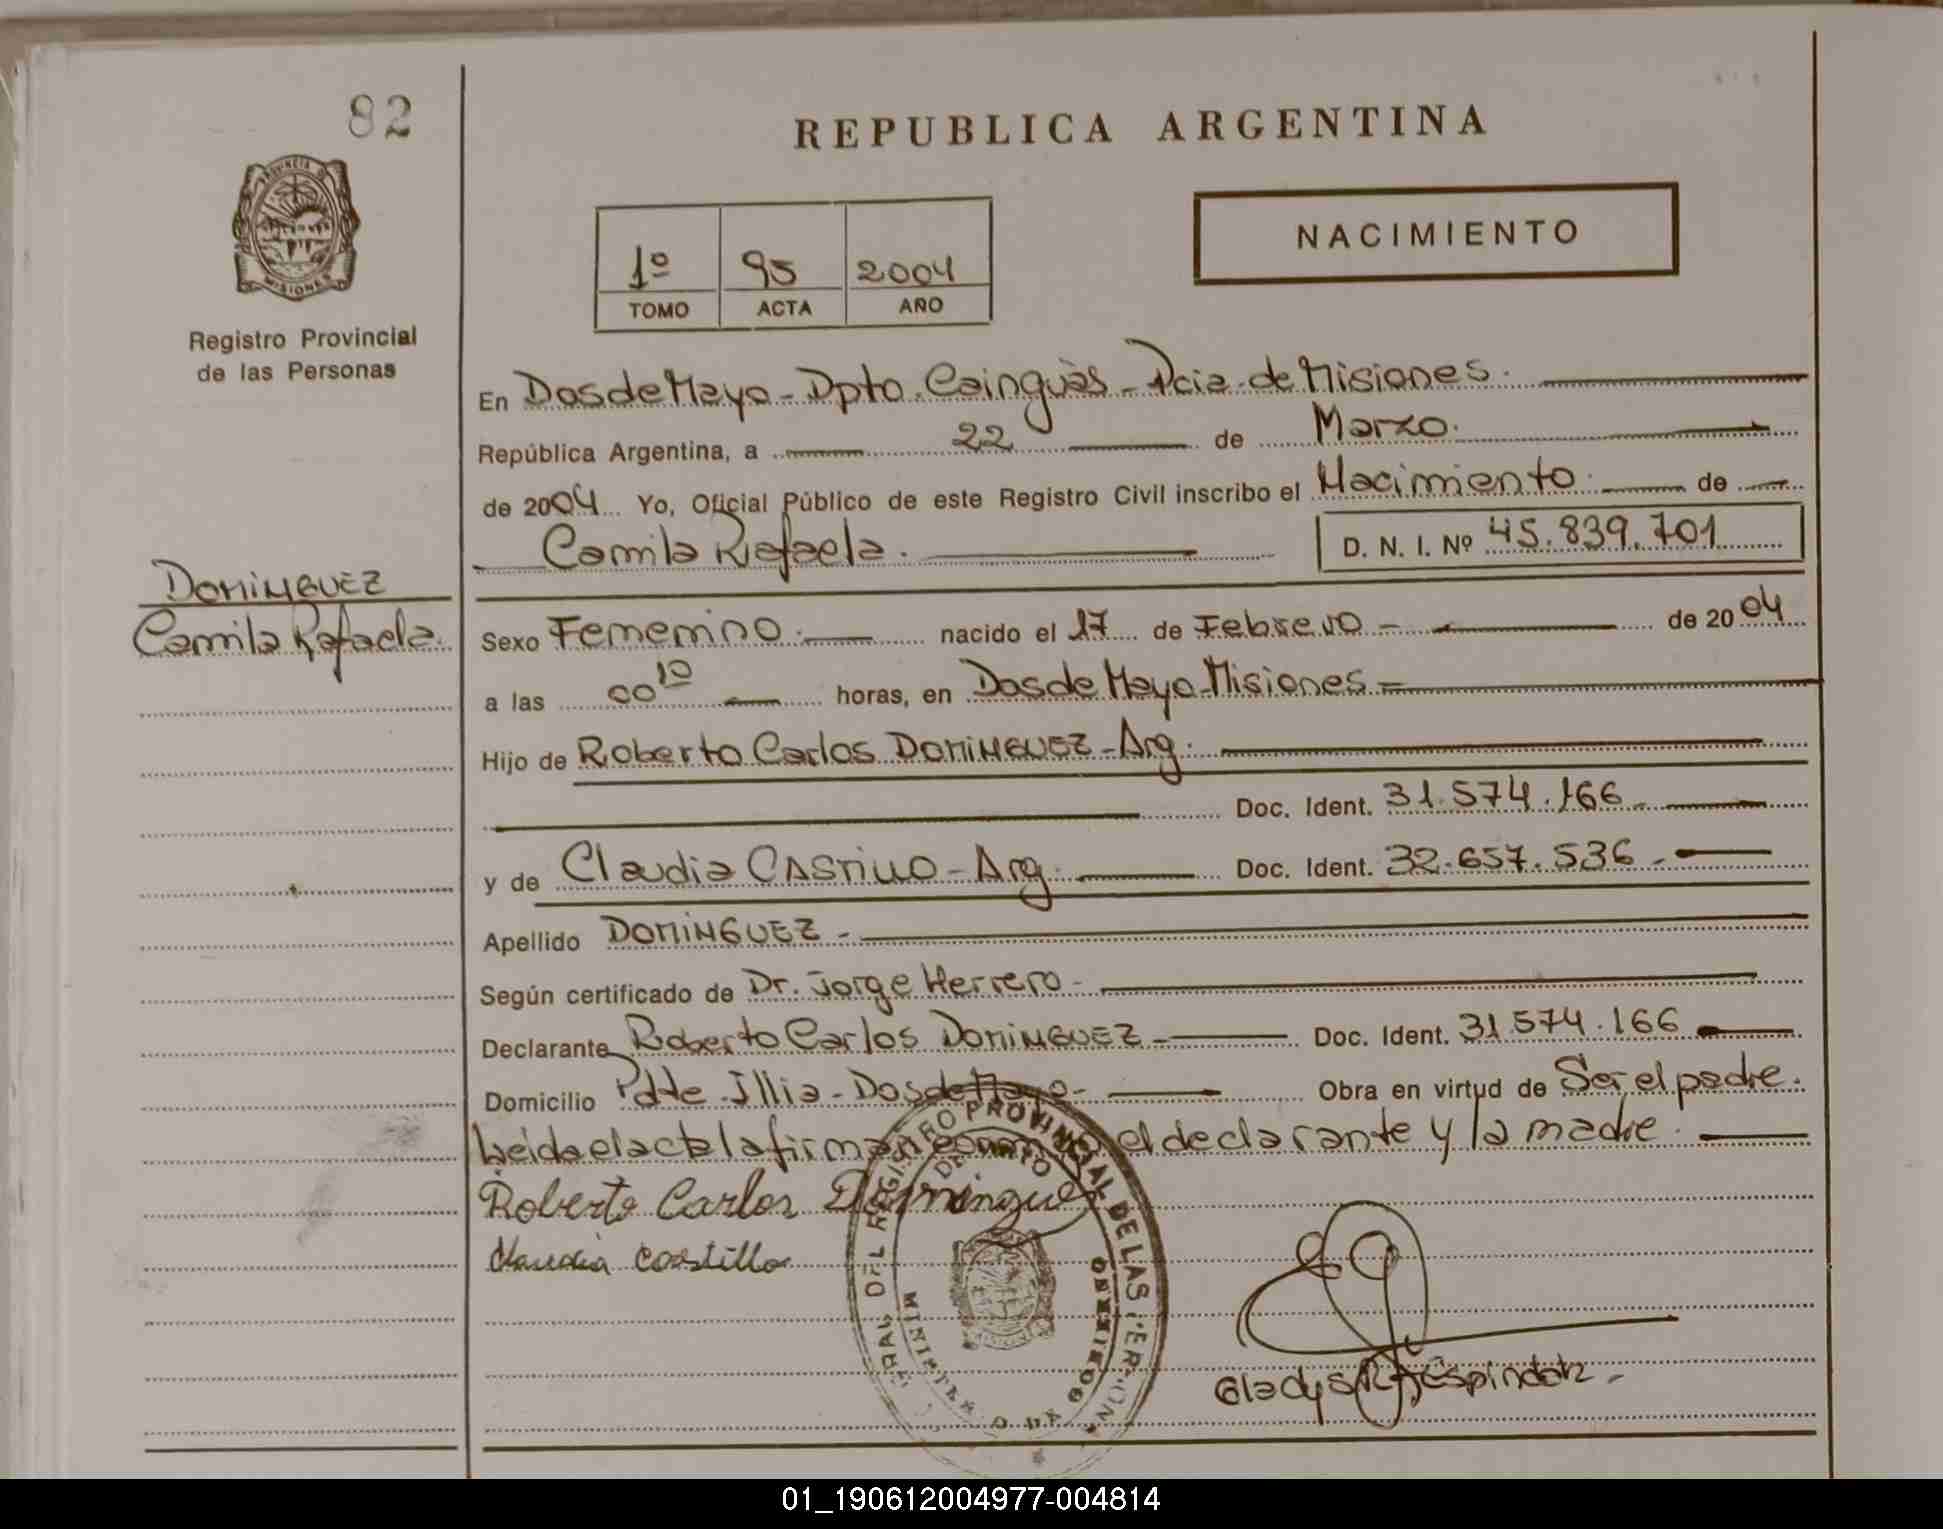 82
REPUBLICA ARGENTINA
PROVINCIA DE
MISIONES
Registro Provincial
de las Personas
1º 95 2004
TOMO ACTA AÑO
NACIMIENTO
En Dos de Mayo - Dpto. Cainguàs - Pcia. de Misiones.
República Argentina, a 22 de Marzo.
de 2004 Yo, Oficial Público de este Registro Civil inscribo el Nacimiento. de
Camila Rafaela.
D. N. I. Nº 45.839.701
DOMINGUEZ
Camila Rafaela.
Sexo Femenino. nacido el 17 de Febrero - de 2004
a las 00 10 horas, en Dos de Mayo - Misiones =
Hijo de Roberto Carlos DOMINGUEZ - Arg.
Doc. Ident. 31.574.166
y de Claudia CASTILLO - Arg. Doc. Ident. 32.657.536 -
Apellido DOMINGUEZ -
Según certificado de Dr. Jorge Herrero -
Declarante Roberto Carlos DOMINGUEZ - Doc. Ident. 31.574.166
Domicilio Pdte. Illia - Dos de Mayo - Obra en virtud de Ser el padre.
Leida el acta la firman el declarante y la madre.
Roberto Carlos Dominguez
Claudia Castillo
REGISTRO PROVINCIAL DE LAS PERSONAS
Gladys Espindola
01_190612004977-004814